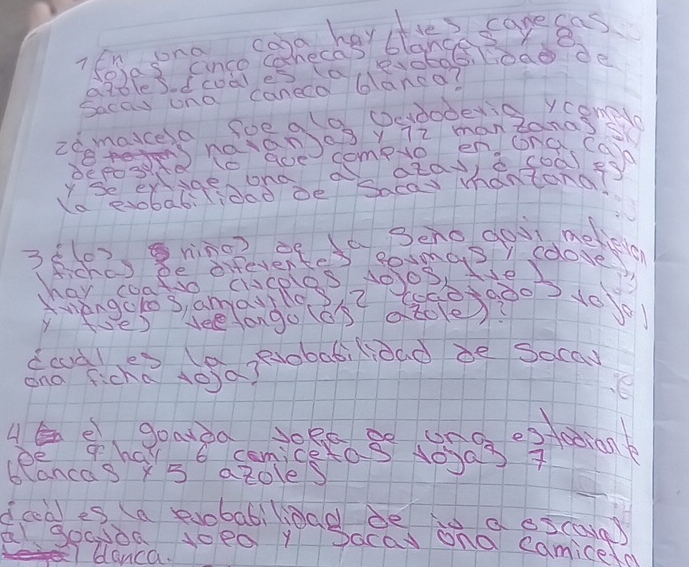 1 En una caja hay tres canecas
rojas cinco canecas blancas y 8
azoles. ¿cual es la probabilidad de
sacar una caneca blanca?
2 ¿marcela fue a la verdoderia y compro
8 naranjas y 12 manzanas si
deposita lo que compro en una caja
y se extrae una al azar ¿ coal es
la probabilidad de sacar manzana?
3 ¿los niños de la Seño
fichas de diferentes formas y colores
hay coatro circolos rojos, tres
triangolos amarillos, 2 coadrados rojos
y tres rectangolos azoles?
¿cual es la probabilidad de sacar
una ficha roja?
4 el goarda ropa de una estodiante
de 9° hay 6 camicetas rojas 7
blancas y 5 azoles
¿coal es la probabilidad de
al goarda ropa y sacar ona camiceta
blanca.